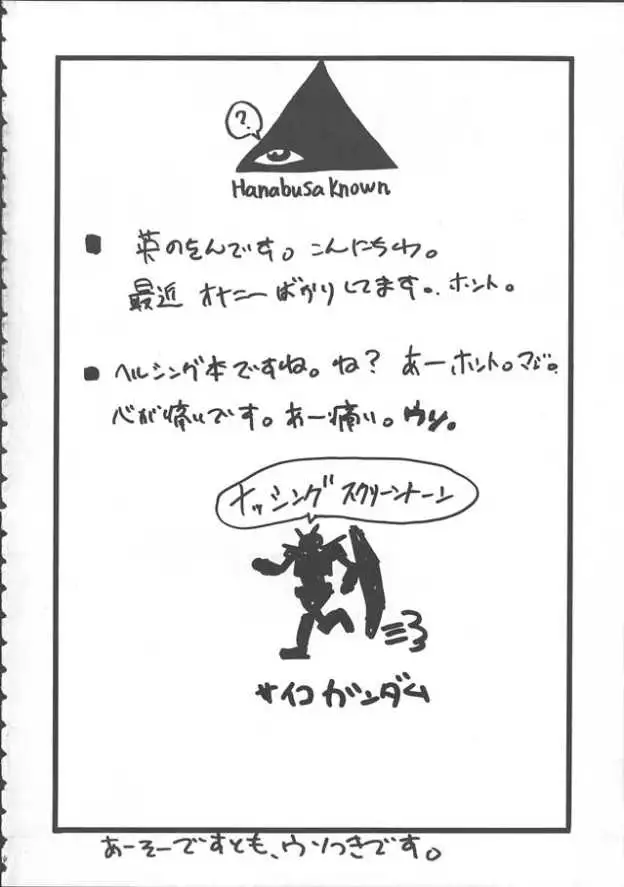 ?
Hanabusa Known
■ 英のをんです。こんにちわ。
最近 オナニーばかりしてます。ホント。
● ヘルシング本ですね。ね？あーホント。マジ。
心が痛いです。あー痛い。ウソ。
ナッシング スクリーンナーン
サイコガンダム
あーそーですとも、ウソつきです。